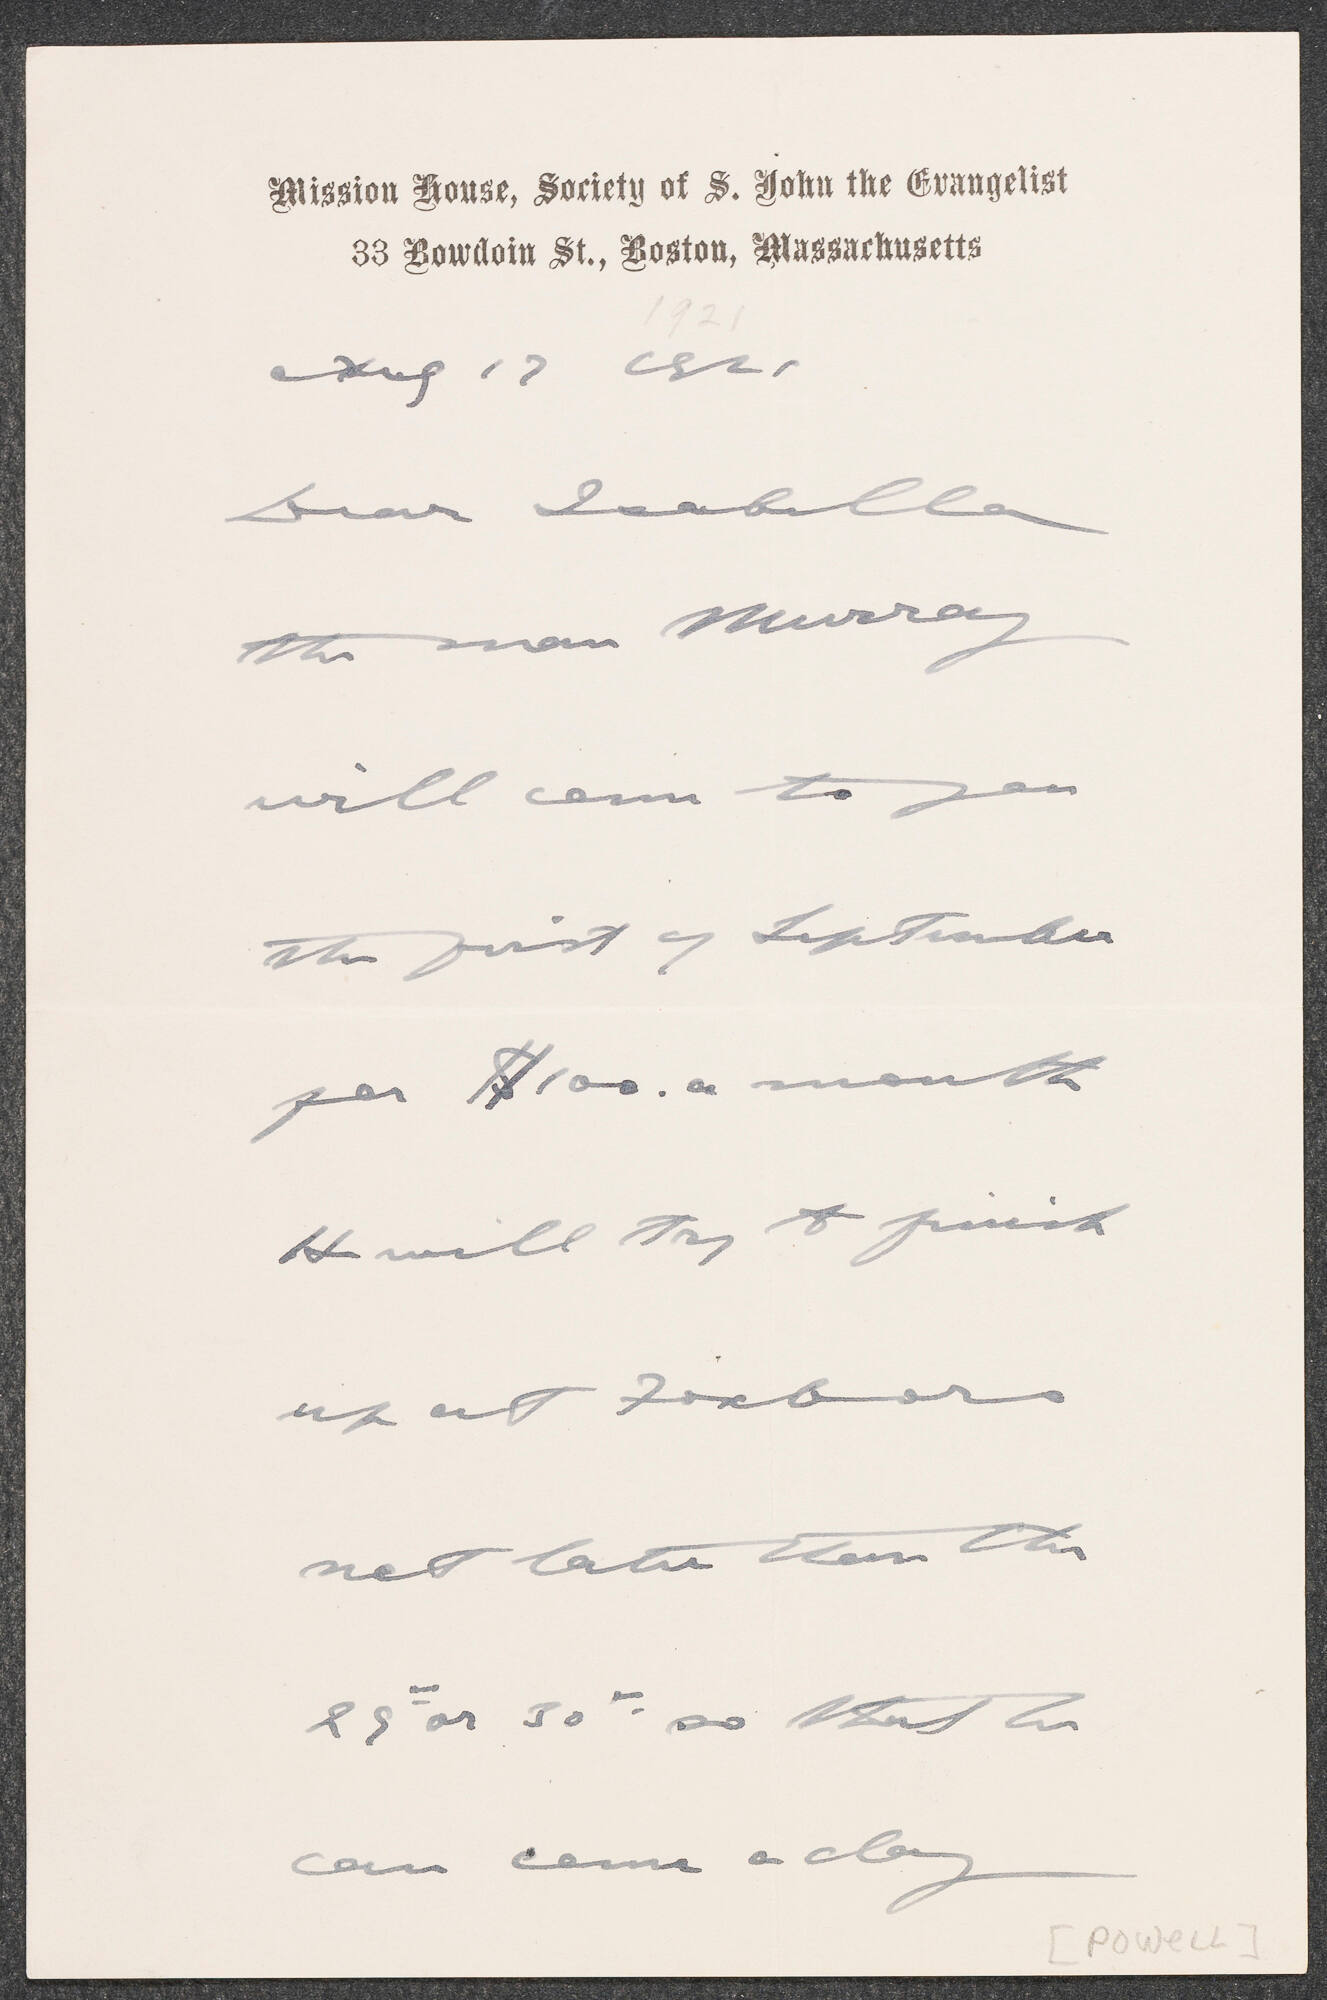 Mission House, Society of S. John the Evangelist
33 Bowdoin St., Boston, Massachusetts
1921
Aug 17 1921
Dear Isabella
the man Murray
will come to you
the first of September
for $100. a month
He will try to finish
up at Foxboro
not later than the
29th or 30th. so that he
can come a day
[POWELL]